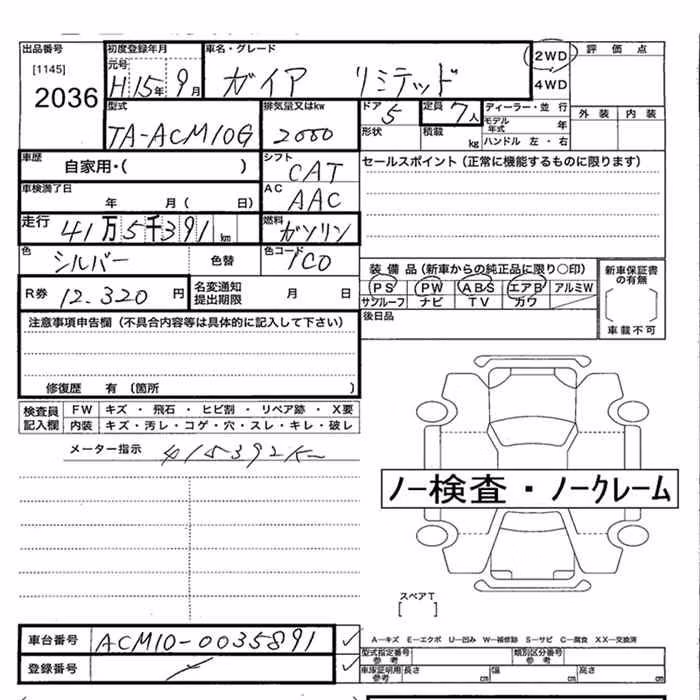 出品番号 初度登録年月 車名・グレード 2WD 評価点
[1145] 元号
2036 H 15年 9月 ガイア リミテッド 4WD
型式 排気量又はkw ドア 定員 ディーラー・並行 外装 内装
TA-ACM10G 2000 5 7人 モデル年式 年
形状 積載 kg ハンドル 左・右
車歴 自家用・( ) シフト CAT セールスポイント(正常に機能するものに限ります)
車検満了日 年 月( 日) AC AAC
走行 41万5千391km 燃料 ガソリン
色 シルバー 色替 色コード 1C0 装備品(新車からの純正品に限り○印) 新車保証書の有無
R券 12.320円 名変通知提出期限 月 日 PS PW ABS エアB アルミW
サンルーフ ナビ TV カワ 車載不可
注意事項申告欄(不具合内容等は具体的に記入して下さい) 後日品
修復歴 有(箇所 )
検査員記入欄 FW キズ・飛石・ヒビ割・リペア跡・X要
内装 キズ・汚レ・コゲ・穴・スレ・キレ・破レ
メーター指示 415392K
ノー検査・ノークレーム
スペアT
[ ]
車台番号 ACM10-0035891 ✓ A―キズ E―エクボ U―凹み W―補修跡 S―サビ C―腐食 XX―交換済
型式指定番号 参考 類別区分番号 参考
登録番号 ✓ 車庫証明用 参考 長さ cm 幅 cm 高さ cm